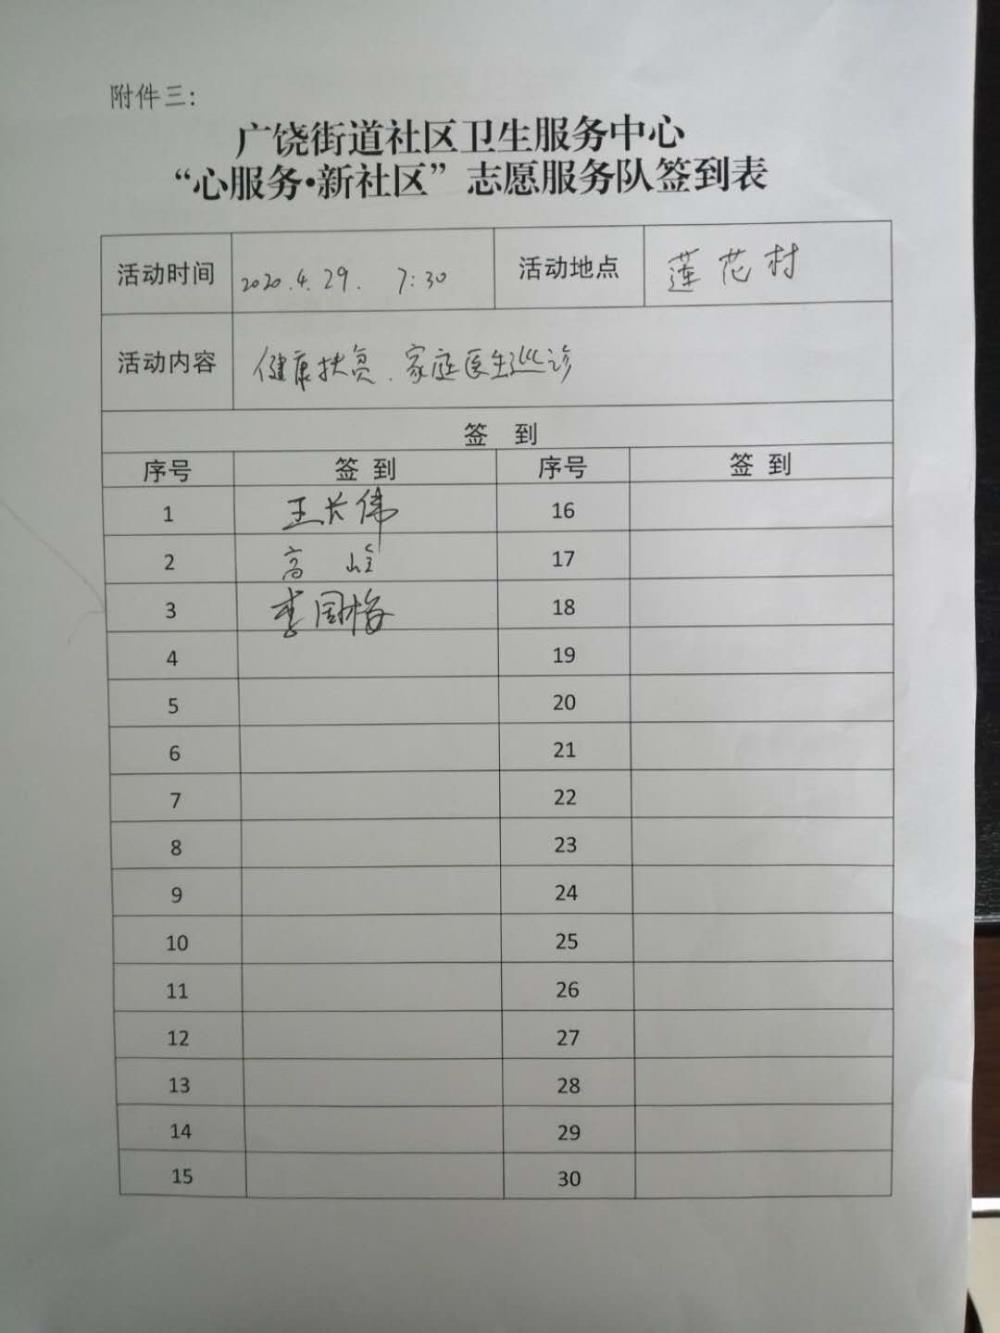 附件三：
广饶街道社区卫生服务中心
“心服务•新社区”志愿服务队签到表
活动时间 2020.4.29. 7:30 活动地点 莲花村
活动内容 健康扶贫、家庭医生巡诊
签 到
序号 签到 序号 签到
1 王长伟 16
2 高 17
3 李国梅 18
4 19
5 20
6 21
7 22
8 23
9 24
10 25
11 26
12 27
13 28
14 29
15 30